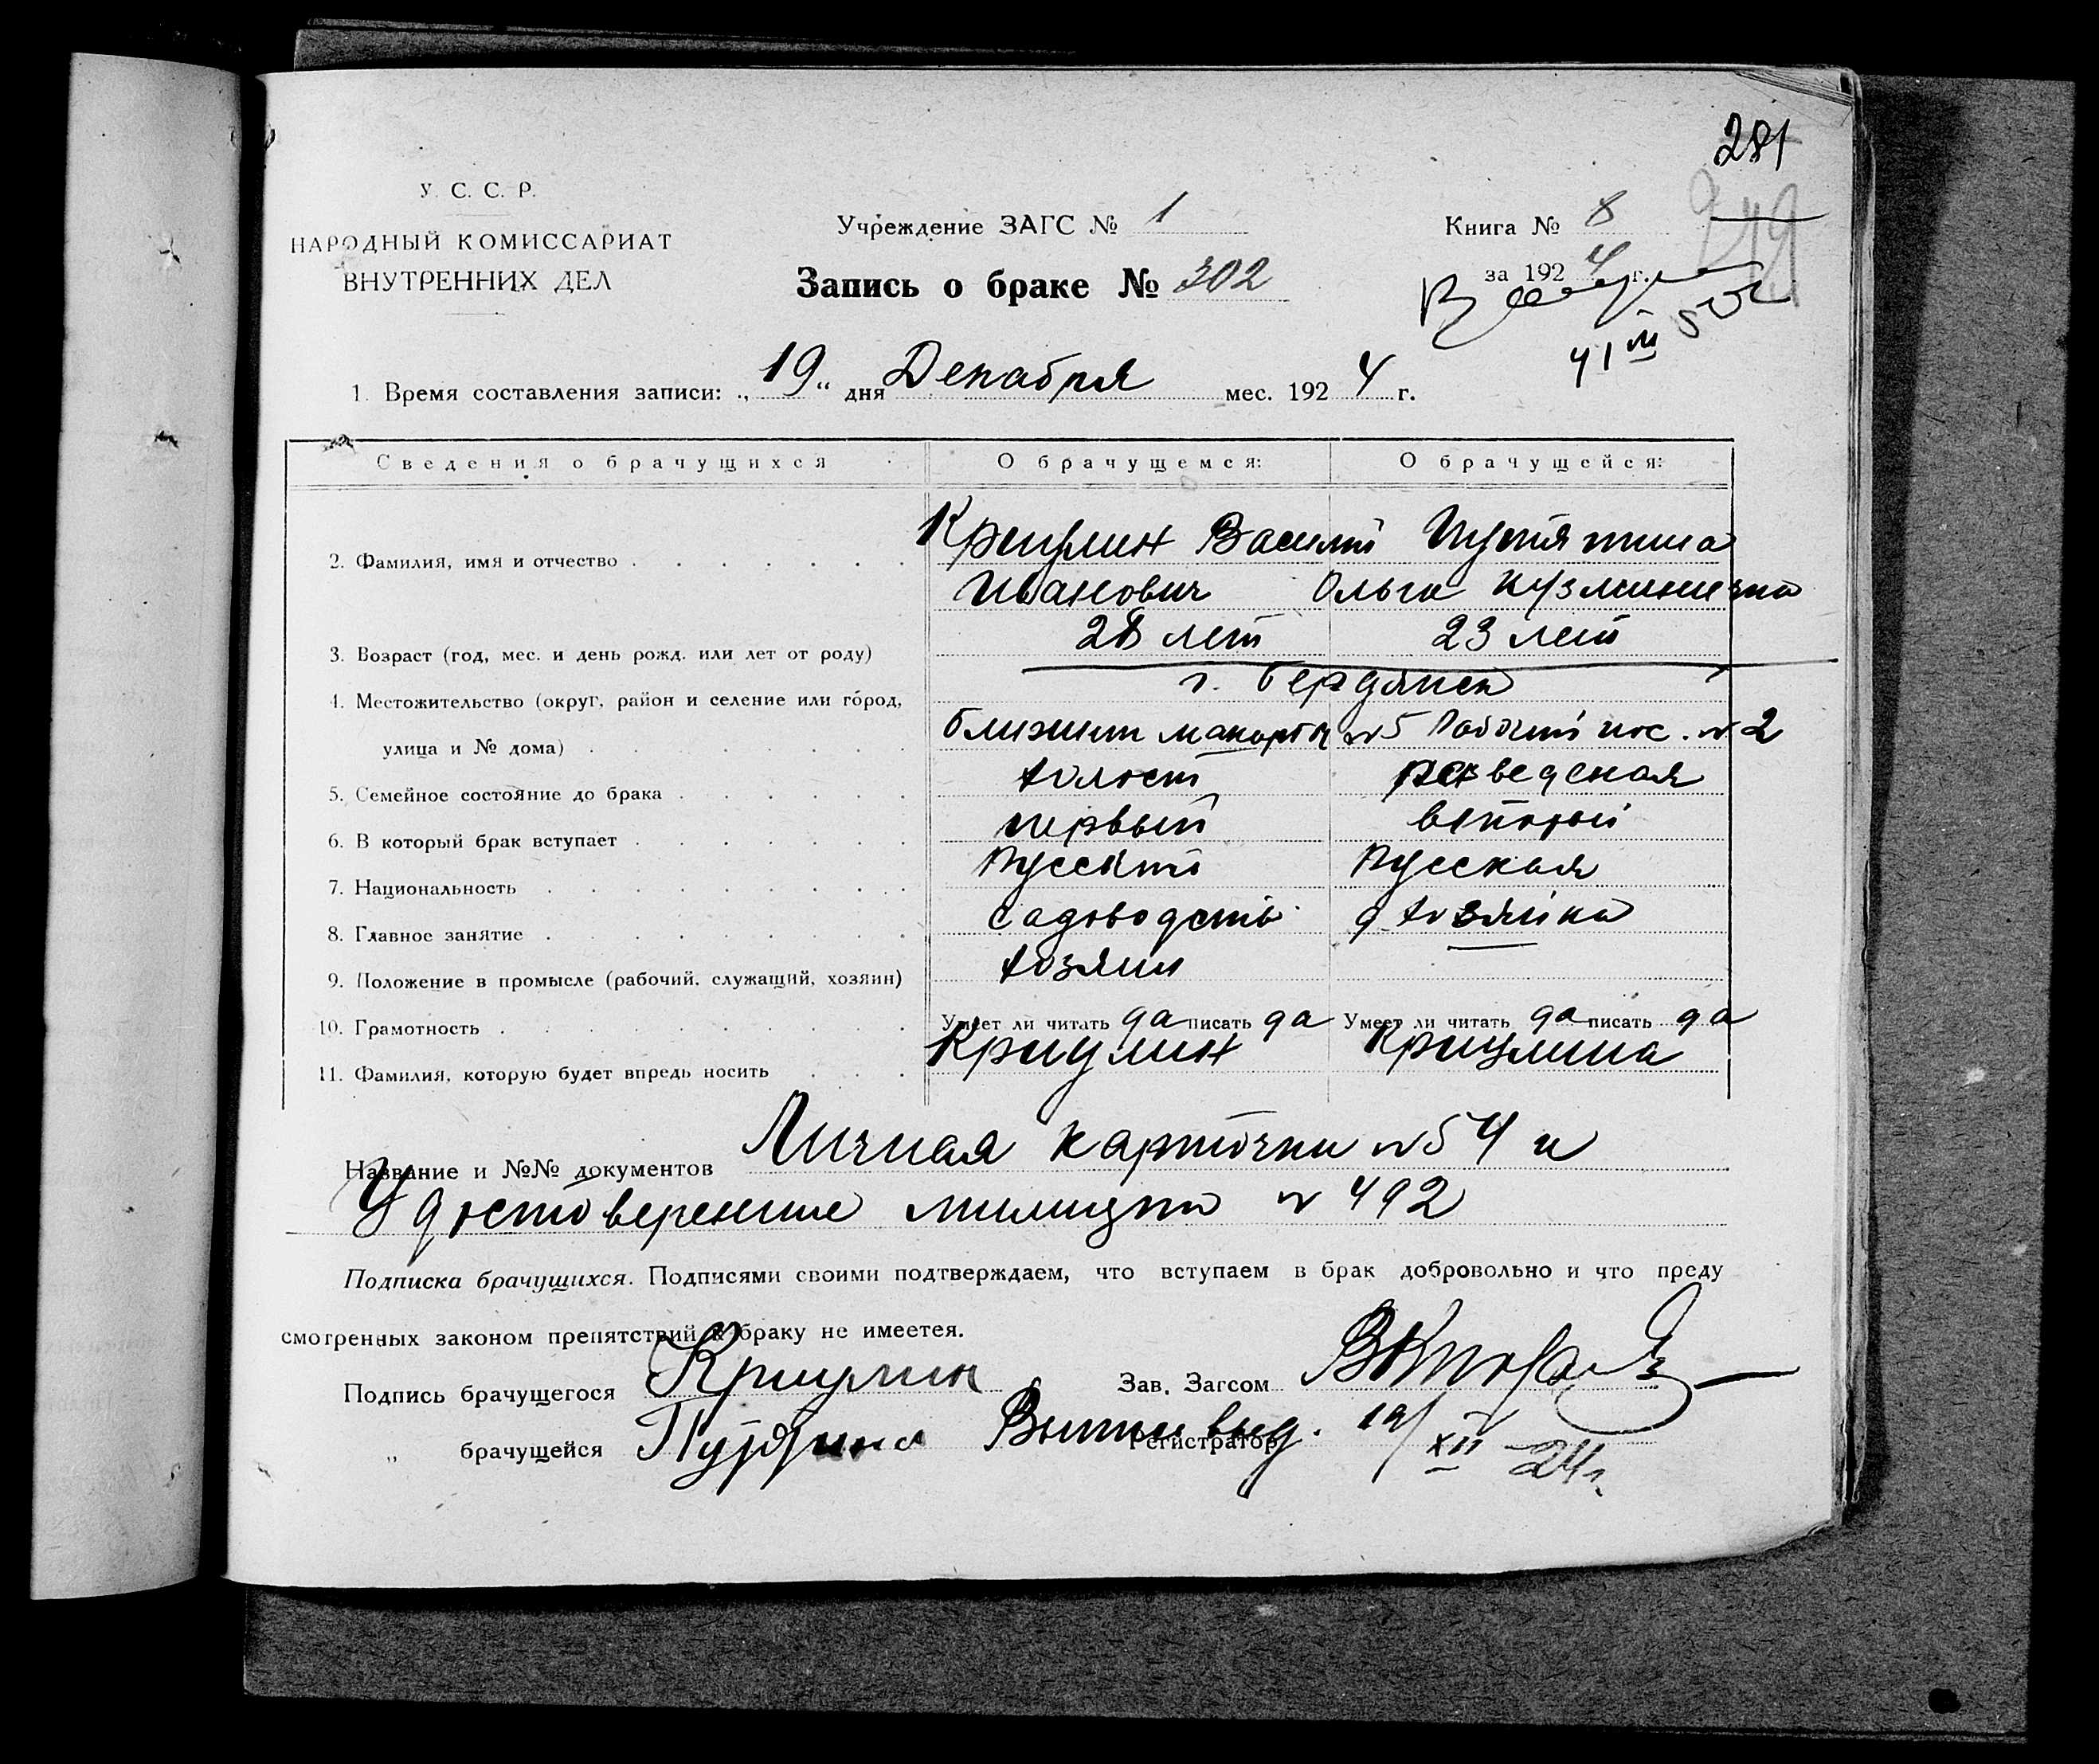 281
У. С. С. Р.
НАРОДНЫЙ КОМИССАРИАТ
ВНУТРЕННИХ ДЕЛ
Учреждение ЗАГС № 1
Запись о браке № 302
Книга № 8
за 1924 г.
1. Время составления записи: „19“ дня Декабря мес. 1924 г.
Сведения о брачущихся О брачущемся: О брачущейся:
2. Фамилия, имя и отчество Криулин Василий
Иванович Ольга Кузминична
3. Возраст (год, мес. и день рожд. или лет от роду) 28 лет 23 лет
4. Местожительство (округ, район и селение или город, г. Бердянск
улица и № дома) Ближние №5 Рабочий пос. №2
5. Семейное состояние до брака холост разведеная
6. В который брак вступает первый второй
7. Национальность Русский Русская
8. Главное занятие садоводств. д. хозяйка
9. Положение в промысле (рабочий, служащий, хозяин) хозяин
10. Грамотность Умеет ли читать да писать да Умеет ли читать да писать да
11. Фамилия, которую будет впредь носить Криулин Криулина
Название и №№ документов Личная карточки №54 и
Удостоверение милиции №492
Подписка брачущихся. Подписями своими подтверждаем, что вступаем в брак добровольно и что преду
смотренных законом препятствий к браку не имеетея.
Подпись брачущегося Криулин Зав. Загсом
„ брачущейся Регистратор выд. 19/XII 24 г.